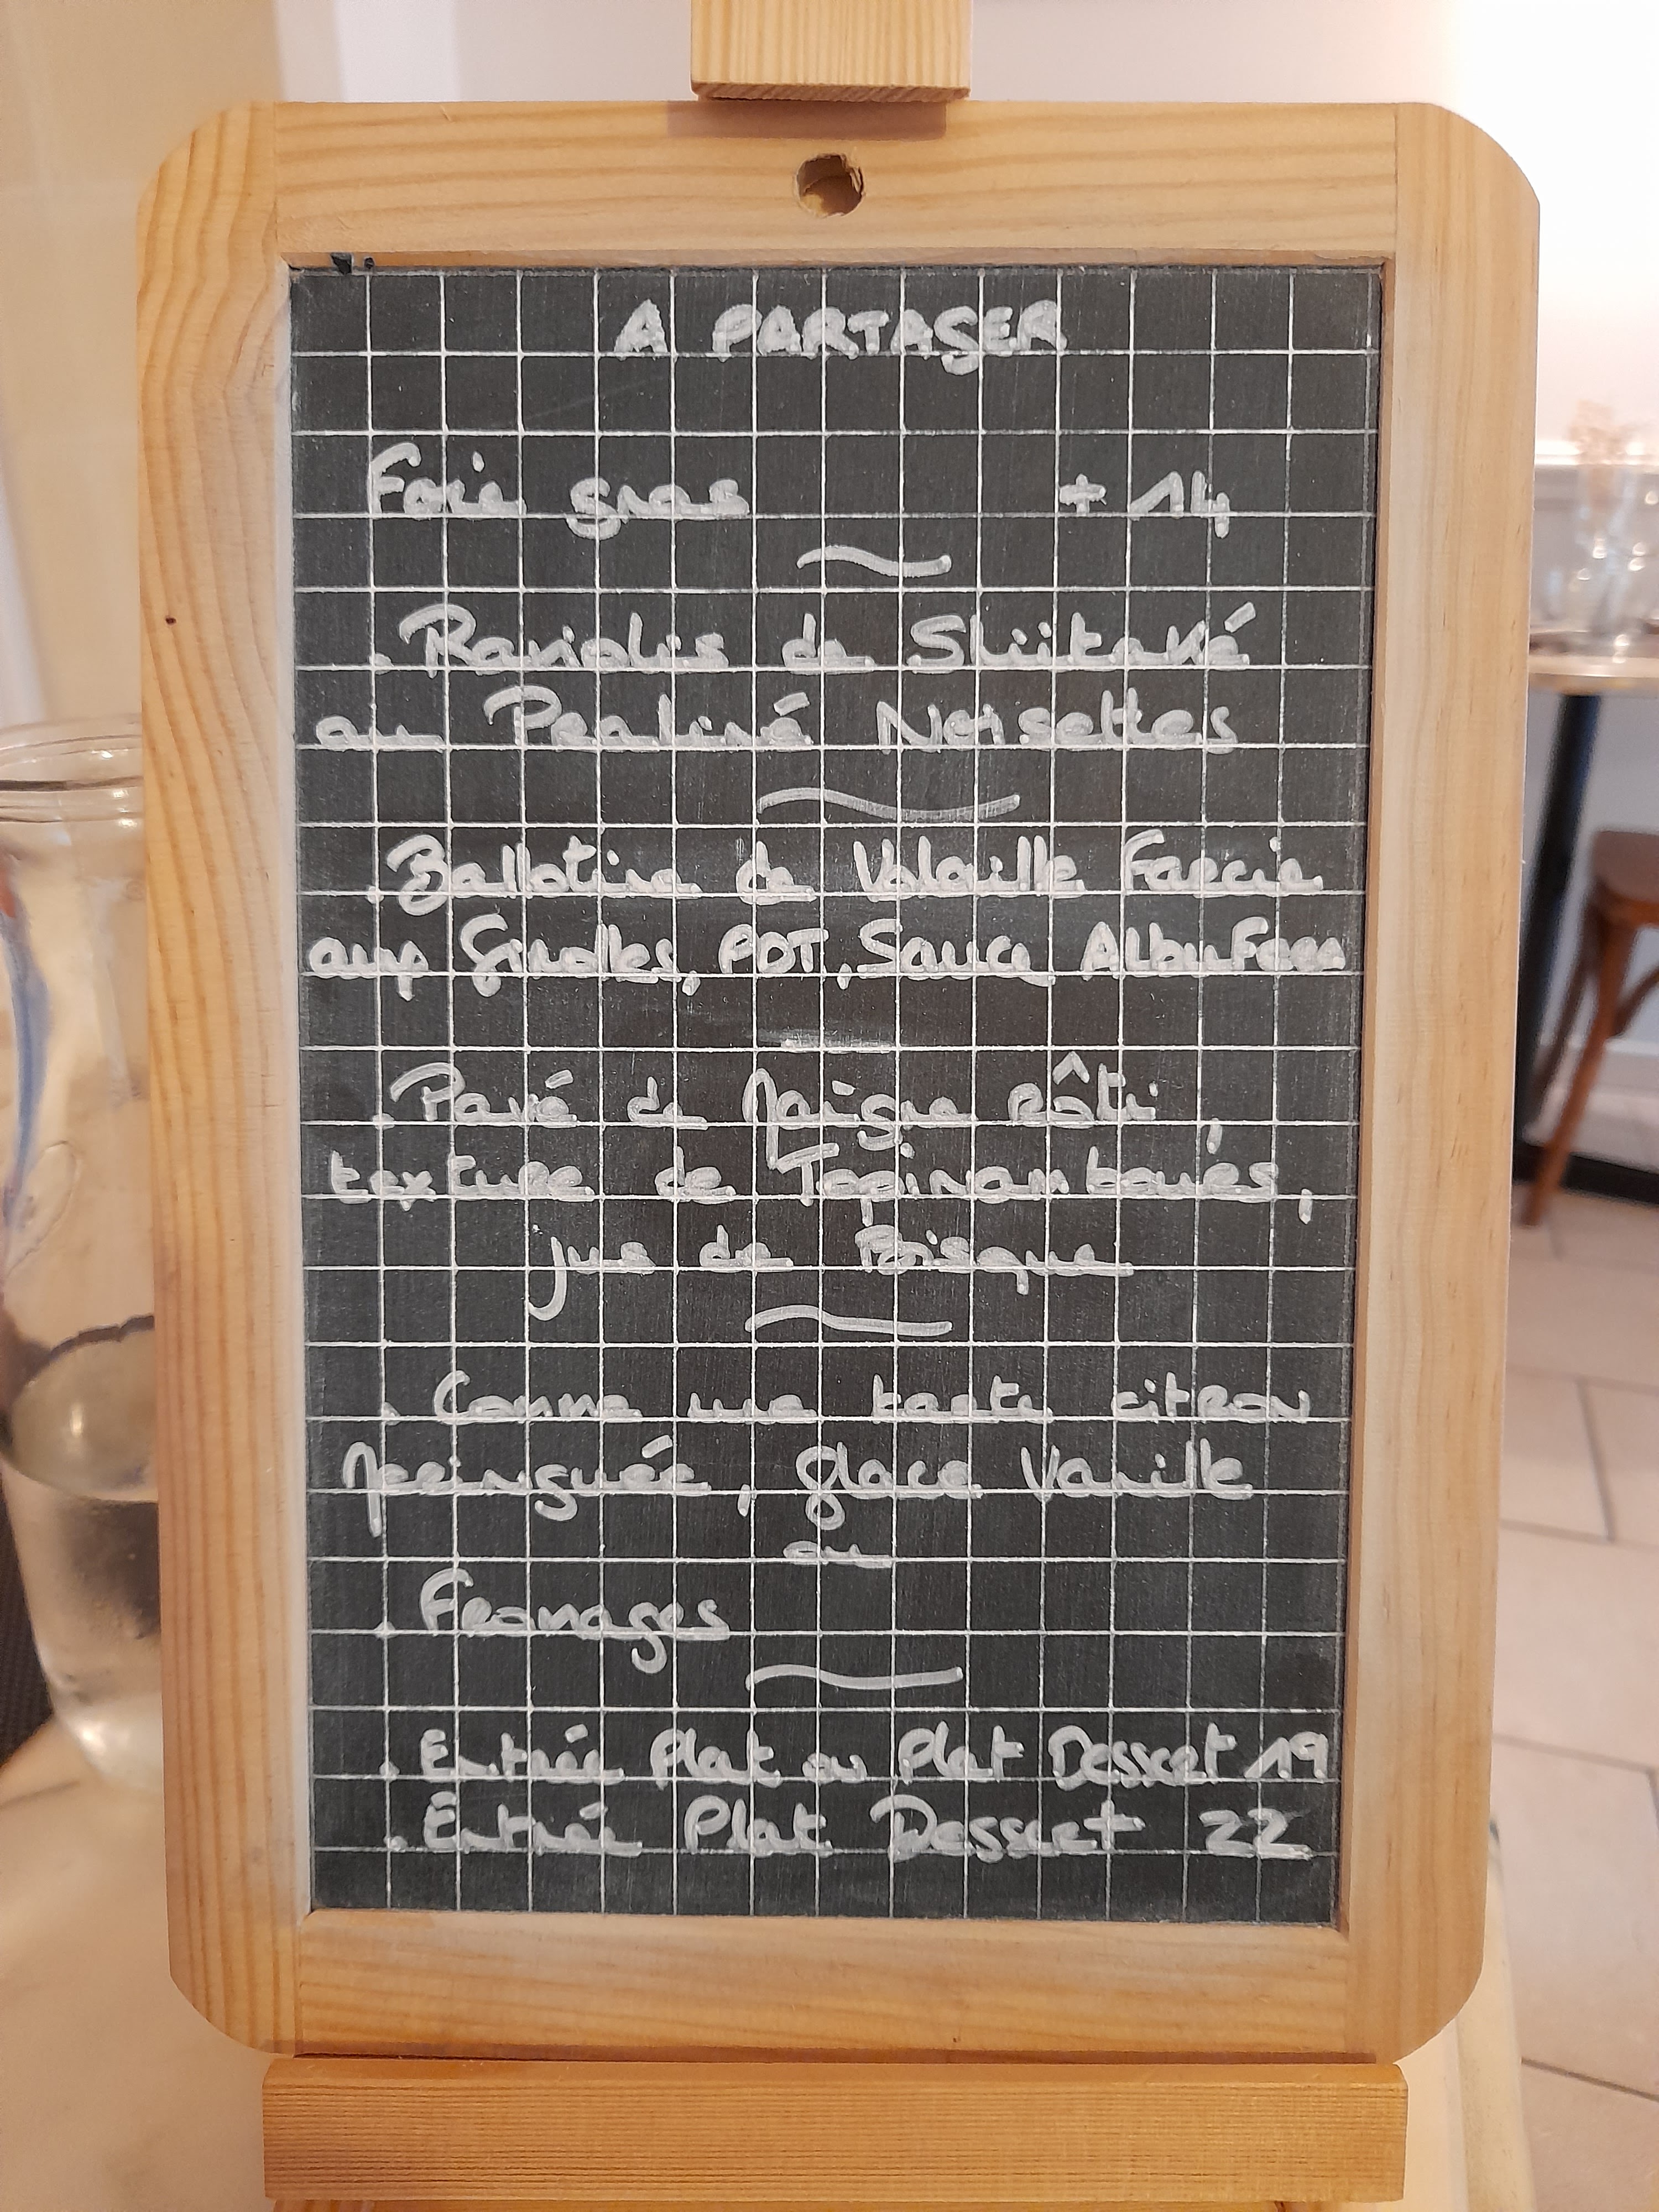 A PARTAGER
Foie gras + 14
. Raviolis de Shiitaké
au Praliné Noisettes
. Ballotine de Volaille Farcie
aux Girolles, PDT, Sauce Albufera
. Pavé de Maigre Rôti,
texture de Topinambours,
jus de Bisque
. Comme une tarte citron
Meringuée, glace Vanille
ou
. Fromages
. Entrée Plat ou Plat Dessert 19
. Entrée Plat Dessert 22